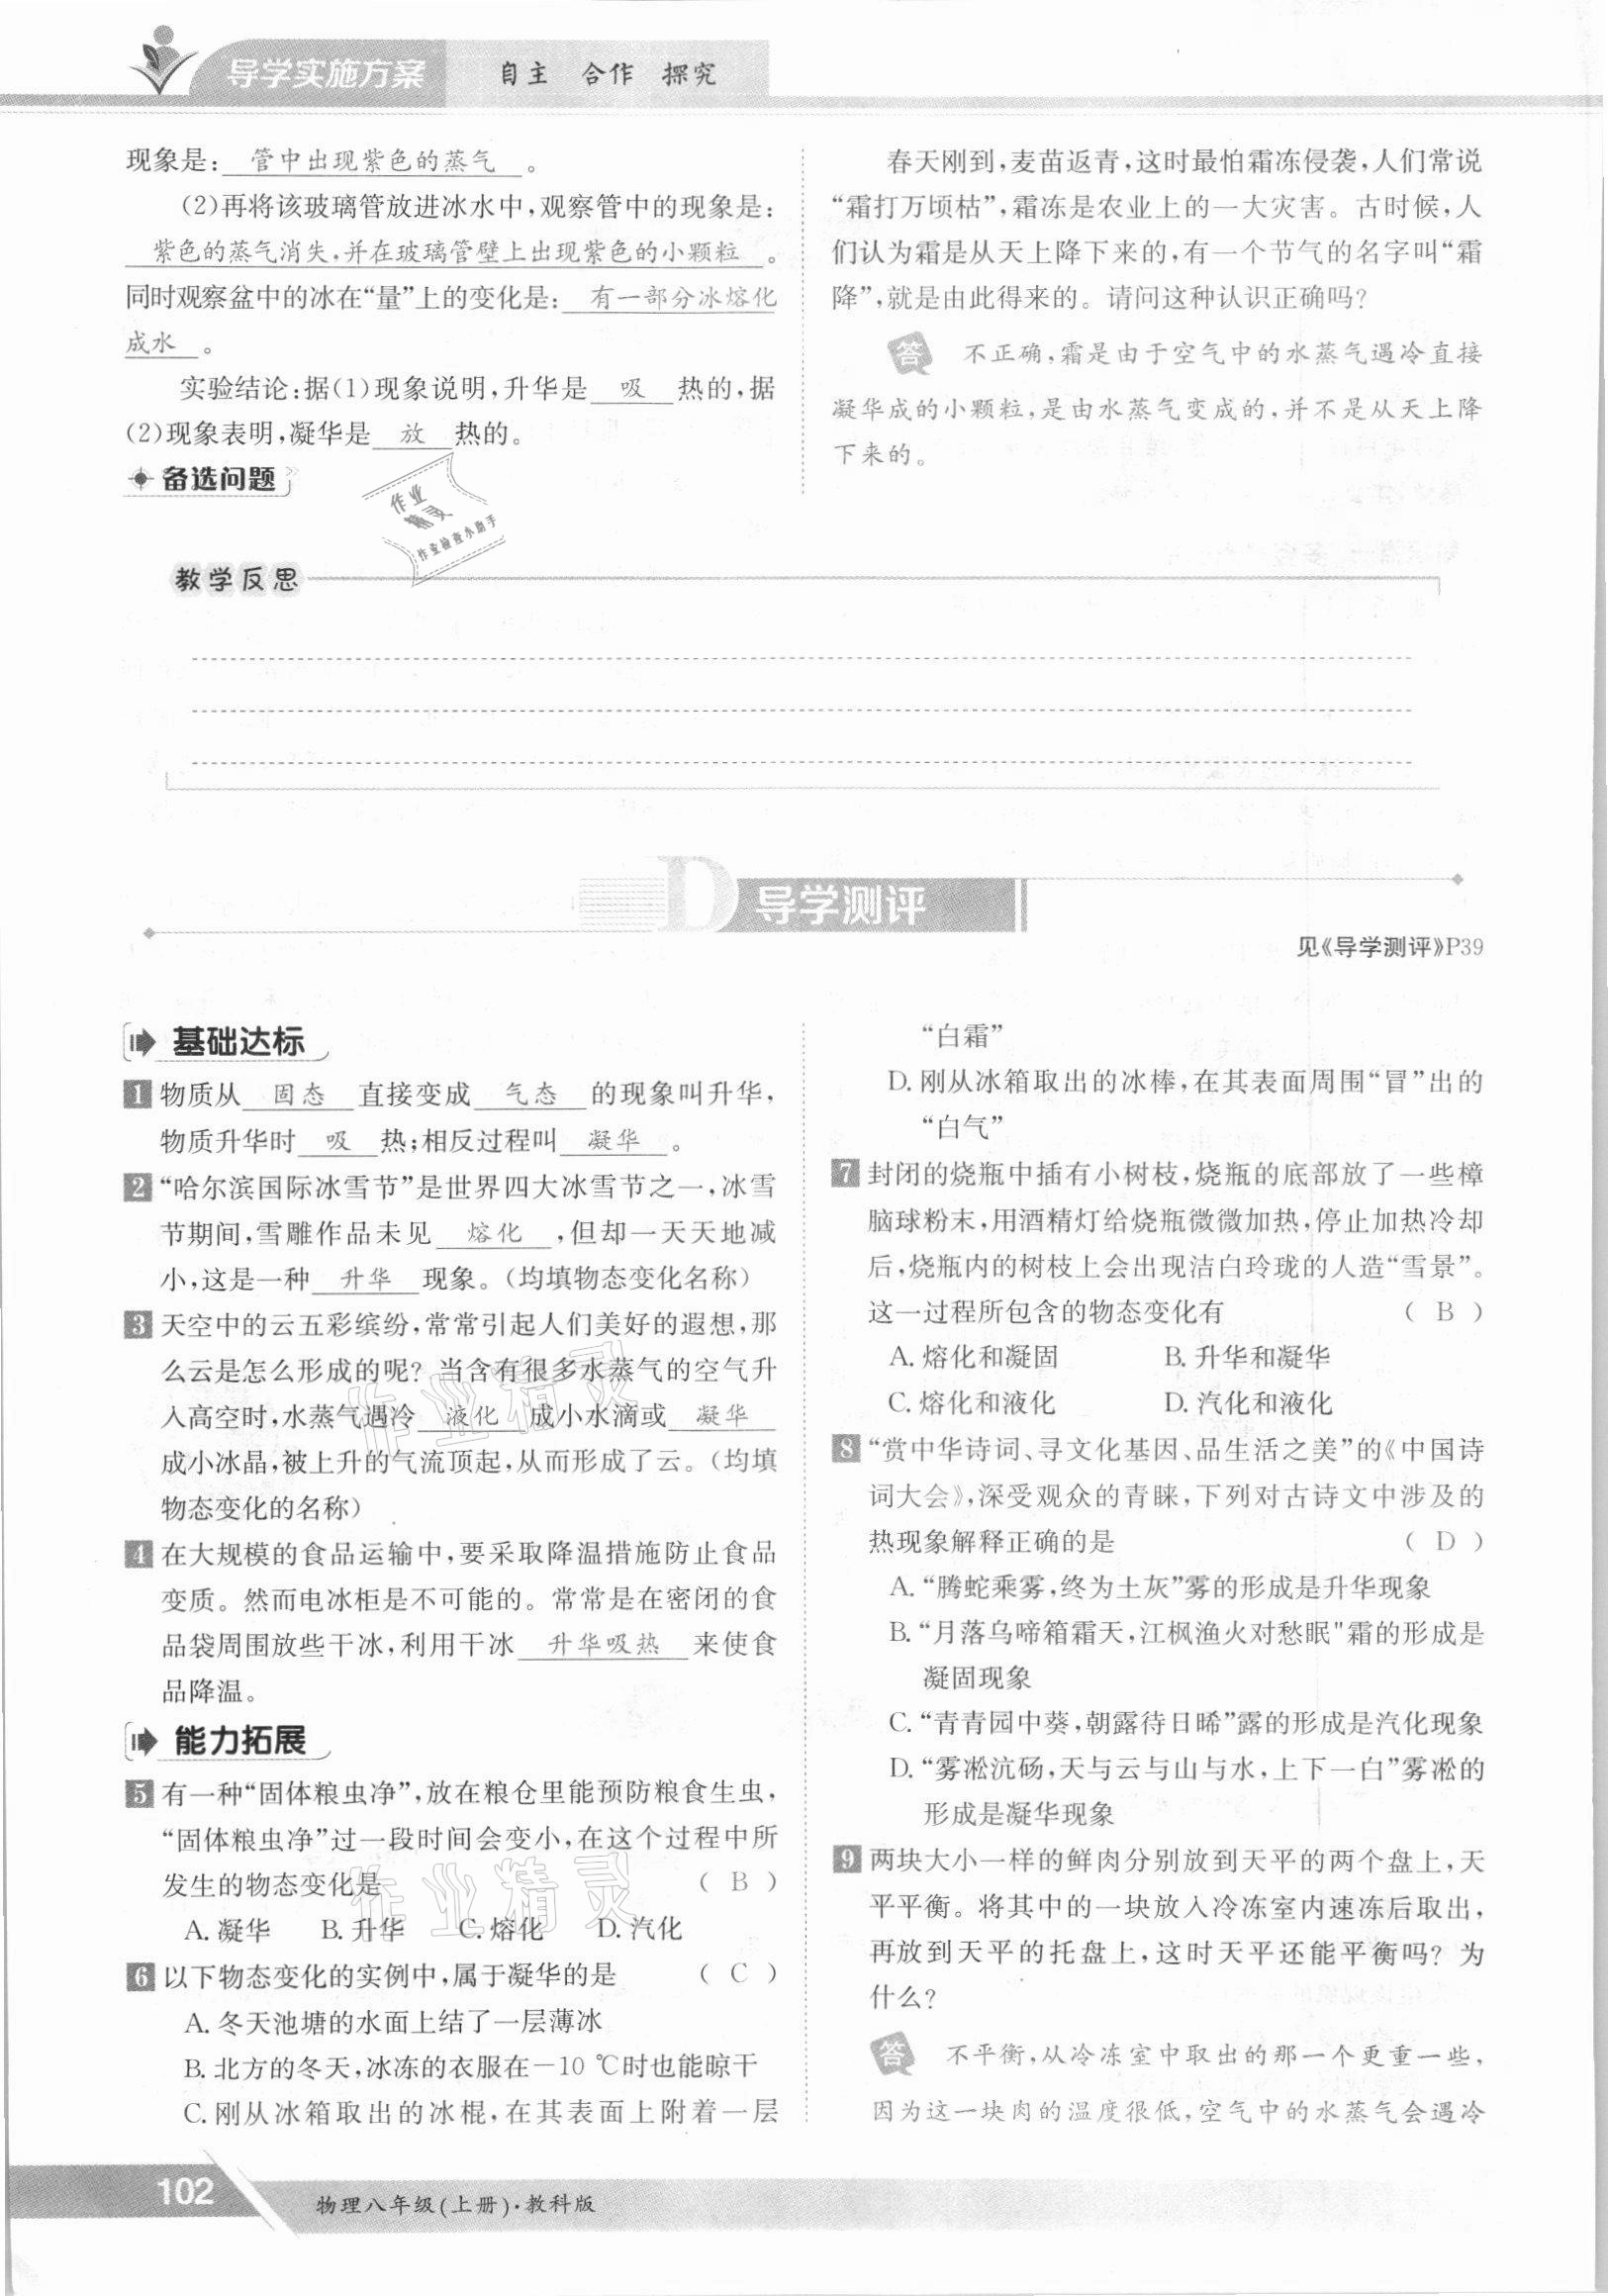 导学实施方案 自主 合作 探究
现象是: 管中出现紫色的蒸气 。
(2)再将该玻璃管放进冰水中,观察管中的现象是:
紫色的蒸气消失,并在玻璃管壁上出现紫色的小颗粒 。
同时观察盆中的冰在“量”上的变化是: 有一部分冰熔化
成水 。
实验结论:据(1)现象说明,升华是 吸 热的,据
(2)现象表明,凝华是 放 热的。
备选问题
春天刚到,麦苗返青,这时最怕霜冻侵袭,人们常说
“霜打万顷枯”,霜冻是农业上的一大灾害。古时候,人
们认为霜是从天上降下来的,有一个节气的名字叫“霜
降”,就是由此得来的。请问这种认识正确吗?
答 不正确,霜是由于空气中的水蒸气遇冷直接
凝华成的小颗粒,是由水蒸气变成的,并不是从天上降
下来的。
作业
精灵
作业检查小助手
教学反思
D 导学测评
见《导学测评》P39
基础达标
1 物质从 固态 直接变成 气态 的现象叫升华,
物质升华时 吸 热;相反过程叫 凝华 。
2 “哈尔滨国际冰雪节”是世界四大冰雪节之一,冰雪
节期间,雪雕作品未见 熔化 ,但却一天天地减
小,这是一种 升华 现象。(均填物态变化名称)
3 天空中的云五彩缤纷,常常引起人们美好的遐想,那
么云是怎么形成的呢? 当含有很多水蒸气的空气升
入高空时,水蒸气遇冷 液化 成小水滴或 凝华
成小冰晶,被上升的气流顶起,从而形成了云。(均填
物态变化的名称)
4 在大规模的食品运输中,要采取降温措施防止食品
变质。然而电冰柜是不可能的。常常是在密闭的食
品袋周围放些干冰,利用干冰 升华吸热 来使食
品降温。
能力拓展
5 有一种“固体粮虫净”,放在粮仓里能预防粮食生虫,
“固体粮虫净”过一段时间会变小,在这个过程中所
发生的物态变化是 ( B )
A. 凝华 B. 升华 C. 熔化 D. 汽化
6 以下物态变化的实例中,属于凝华的是 ( C )
A. 冬天池塘的水面上结了一层薄冰
B. 北方的冬天,冰冻的衣服在-10 ℃时也能晾干
C. 刚从冰箱取出的冰棍,在其表面上附着一层
“白霜”
D. 刚从冰箱取出的冰棒,在其表面周围“冒”出的
“白气”
7 封闭的烧瓶中插有小树枝,烧瓶的底部放了一些樟
脑球粉末,用酒精灯给烧瓶微微加热,停止加热冷却
后,烧瓶内的树枝上会出现洁白玲珑的人造“雪景”。
这一过程所包含的物态变化有 ( B )
A. 熔化和凝固 B. 升华和凝华
C. 熔化和液化 D. 汽化和液化
8 “赏中华诗词、寻文化基因、品生活之美”的《中国诗
词大会》,深受观众的青睐,下列对古诗文中涉及的
热现象解释正确的是 ( D )
A. “腾蛇乘雾,终为土灰”雾的形成是升华现象
B. “月落乌啼箱霜天,江枫渔火对愁眠"霜的形成是
凝固现象
C. “青青园中葵,朝露待日晞”露的形成是汽化现象
D. “雾凇沆砀,天与云与山与水,上下一白”雾凇的
形成是凝华现象
9 两块大小一样的鲜肉分别放到天平的两个盘上,天
平平衡。将其中的一块放入冷冻室内速冻后取出,
再放到天平的托盘上,这时天平还能平衡吗? 为
什么?
答 不平衡,从冷冻室中取出的那一个更重一些,
因为这一块肉的温度很低,空气中的水蒸气会遇冷
作业精灵
作业精灵
102 物理八年级(上册)·教科版